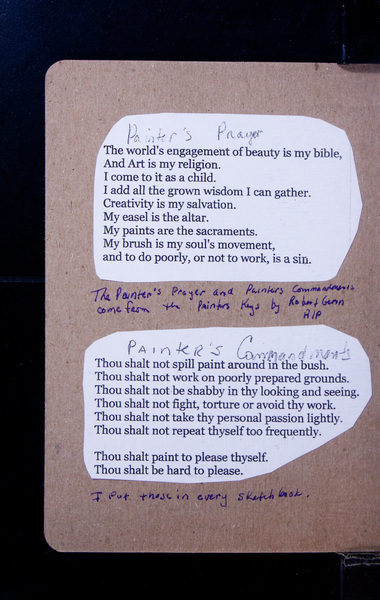 Painter's Prayer
The world's engagement of beauty is my bible,
And Art is my religion.
I come to it as a child.
I add all the grown wisdom I can gather.
Creativity is my salvation.
My easel is the altar.
My paints are the sacraments.
My brush is my soul's movement,
and to do poorly, or not to work, is a sin.
The Painter's Prayer and Painters Commandments
come from the Painters Keys by Robert Genn
RIP
PAINTER'S Commandments
Thou shalt not spill paint around in the bush.
Thou shalt not work on poorly prepared grounds.
Thou shalt not be shabby in thy looking and seeing.
Thou shalt not fight, torture or avoid thy work.
Thou shalt not take thy personal passion lightly.
Thou shalt not repeat thyself too frequently.
Thou shalt paint to please thyself.
Thou shalt be hard to please.
I put these in every sketchbook.